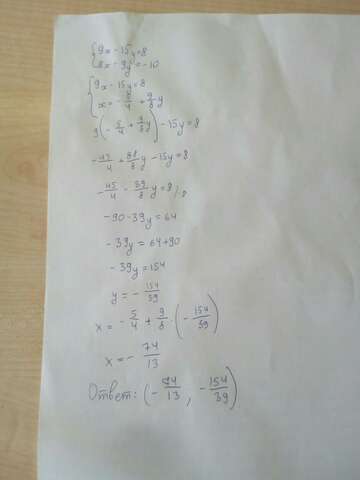 {9x-15y=8
{8x-9y=-10
{9x-15y=8
{x=-5/4+9/8y
9(-5/4+9/8y)-15y=8
-45/4+81/8y-15y=8
-45/4-39/8y=8 |·8
-90-39y=64
-39y=64+90
-39y=154
y=-154/39
x=-5/4+9/8·(-154/39)
x=-74/13
Ответ: (-74/13, -154/39)